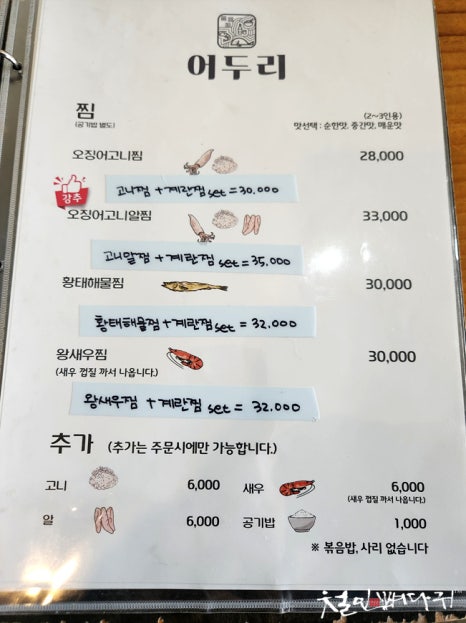 어두리
찜
(공기밥 별도)
(2~3인용)
맛선택 : 순한맛, 중간맛, 매운맛
오징어고니찜 28,000
고니찜 + 계란찜 set = 30.000
강추
오징어고니알찜 33,000
고니알찜 + 계란찜 set = 35.000
황태해물찜 30,000
황태해물찜 + 계란찜 set = 32.000
왕새우찜 30,000
(새우 껍질 까서 나옵니다.)
왕새우찜 + 계란찜 set = 32.000
추가 (추가는 주문시에만 가능합니다.)
고니 6,000 새우 6,000
(새우 껍질 까서 나옵니다.)
알 6,000 공기밥 1,000
※ 볶음밥, 사리 없습니다